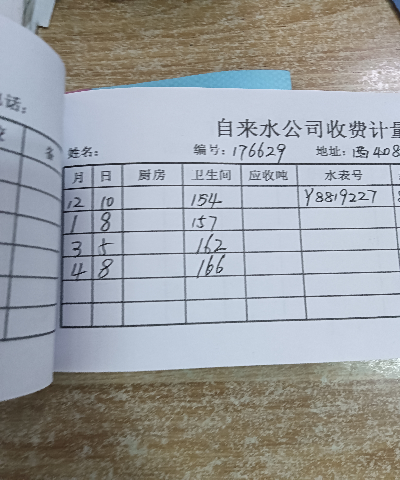 自来水公司收费计量
姓名: 编号:176629 地址:西408
月 日 厨房 卫生间 应收吨 水表号
12 10 154 Y8819227
1 8 157
3 5 162
4 8 166
话:
备